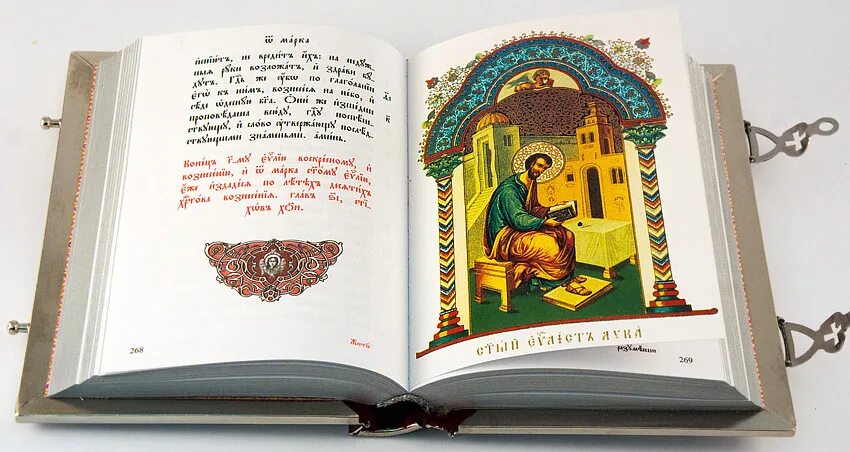 Ѿ ма́рка
и҆спїю́тъ, не вреди́тъ и҆́хъ: на неду́ж-
ныѧ рꙋ́ки возложа́тъ, и҆ здра́ви бꙋ́-
дꙋтъ. Гдⷭ҇ь же ᲂу҆́бѡ по глаго́ланїи
є҆гѡ̀ къ ни̑мъ, вознесе́сѧ на нб҃о, и҆
сѣ́де ѡ҆деснꙋ́ю бг҃а. Ѻ҆ни́ же и҆зше́дше
проповѣ́даша всю́дꙋ, гдⷭ҇ꙋ поспѣ́ш-
ствꙋющꙋ, и҆ сло́во ᲂу҆твержда́ющꙋ послѣ́д-
ствꙋющими зна́меньми. а҆ми́нь.
Коне́цъ г҃-мꙋ є҆ѵⷢ҇лїю воскре́сномꙋ, и҆
вознесе́нїю, и҆ Ѿ ма́рка ст҃о́мꙋ є҆ѵⷢ҇лїю,
є҆́же и҆здаде́сѧ по лѣ́тѣхъ десѧти́хъ
хрⷭ҇то́ва вознесе́нїѧ. гла́въ ѕ҃і, сті-
хѡ́въ хо҃и.
268
Сты́й є҆ѵⷢ҇лі́стъ лꙋка̀
269